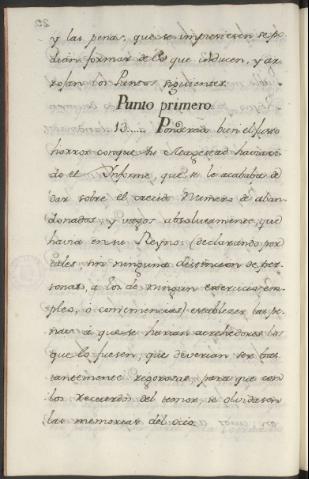 y las penas, que se impusiesen se po-
dian formar de lo que inducen, y ar-
rojan los Puntos siguientes.
Punto primero.
13...... Ponderado bien el justo
horror conque su Magestad havia oi-
do el Informe, que se le acababa de
dar sobre el crecido Numero de aban-
donados, y vagos absolutamente, que
havia en su Reyno, (declarando por
tales, sin ninguna distincion de per-
sonas, a los de ningun exercicio, em-
pleo, ó conveniencias) establecer las pe-
nas á que se harian acrehedores los
que lo fuesen, que deverian ser bas-
tantemente rigorosas, para que con
los recuerdos del temor, se olvidasen
las memorias del ocio.